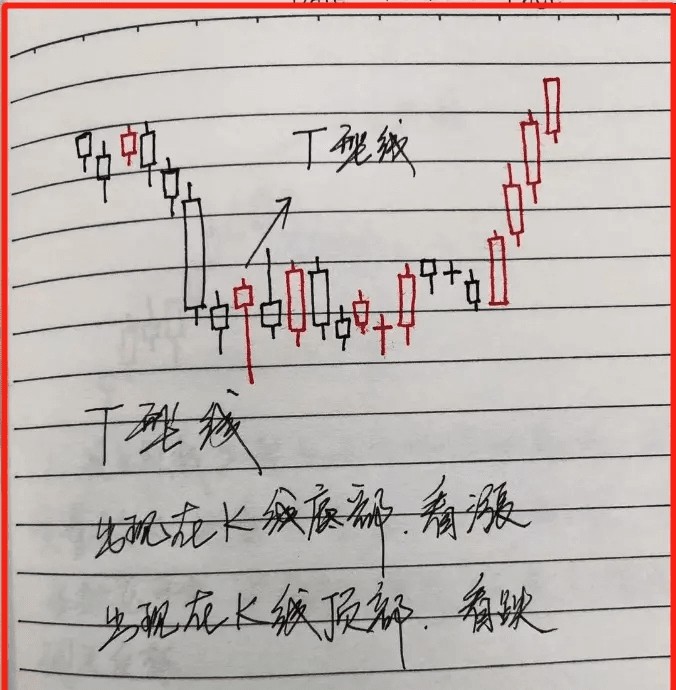 T型线
T型线
出现在K线底部.看漲
出现在K线顶部.看跌